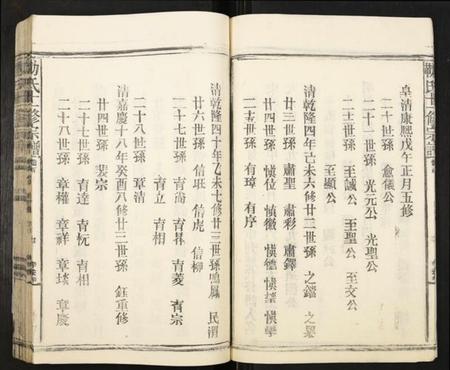 皇清康熙戊午正月五修
二十世孫 愈儀公
二十一世孫 光元公 光聖公
二十二世孫 至誠公 至聖公 至文公
至顯公
清乾隆四年己未六修廿三世孫 之鐺
廿三世孫 肅聖 肅彩 肅鐸
廿四世孫 慎位 慎徽
二十五世孫 有璋 有序
清乾隆四十年乙未七修廿三世孫 民渭
廿六世孫 信珉 信虎 信柳
二十七世孫 育尚 育昇 育菱 育宗
育立 育相
二十八世孫 章清
清嘉慶十八年癸酉八修廿三世孫 鈺重修
廿四世孫 裴宗
二十七世孫 育達 育阮 育相
二十八世孫 章權 章祥 章琰 章慶